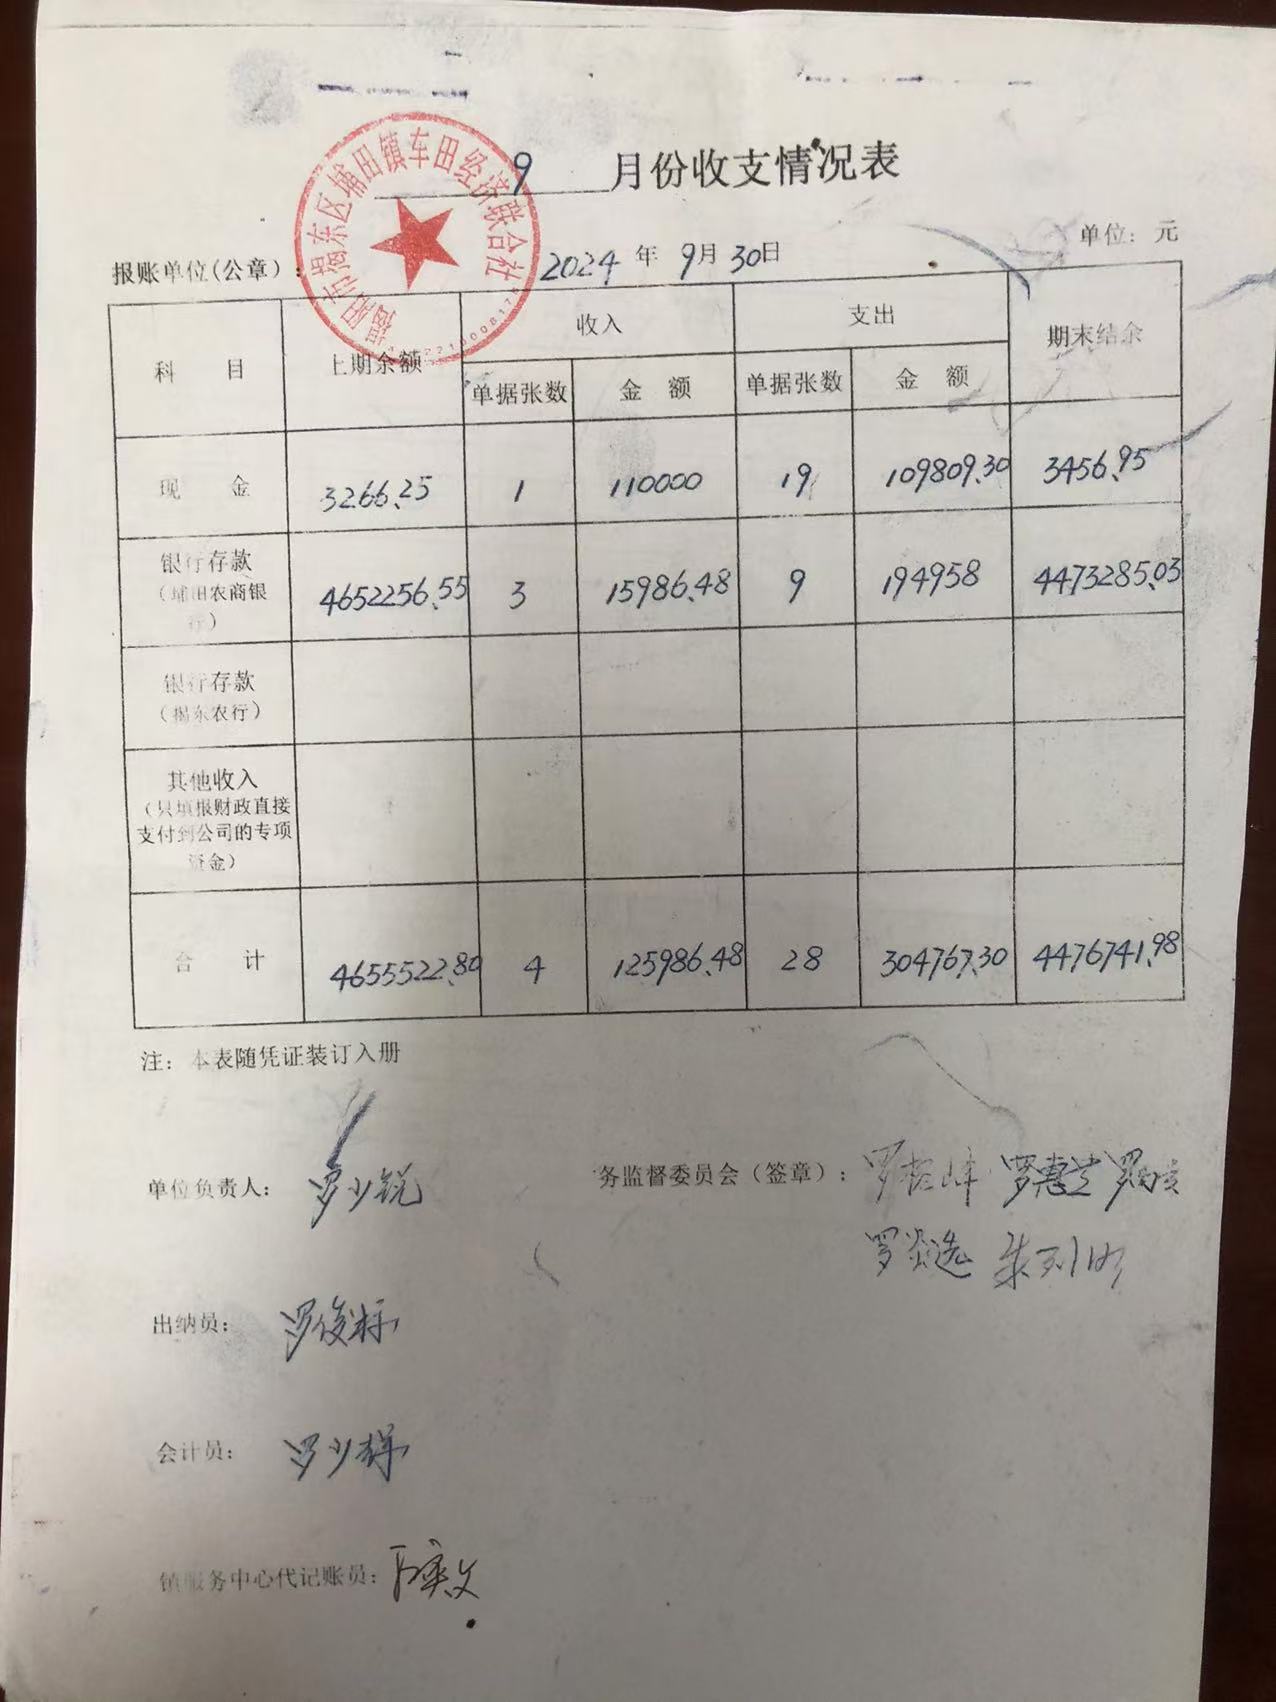 揭阳市揭东区埔田镇车田经济联合社
9 月份收支情况表
单位：元
报账单位(公章)： 2024 年 9月 30日
科 目 上期余额 收入 支出 期末结余
单据张数 金 额 单据张数 金 额
现 金 3266.25 1 110000 19 109809.30 3456.95
银行存款 4652256.55 3 15986.48 9 194958 4473285.03
（埔田农商银
行）
银行存款
（揭东农行）
其他收入
（只填报财政直接
支付到公司的专项
资金）
合 计 4655522.80 4 125986.48 28 304767.30 4476741.98
注：本表随凭证装订入册
单位负责人： 罗少锐 务监督委员会（签章）：
出纳员： 罗俊标
会计员： 罗少群
镇服务中心代记账员：